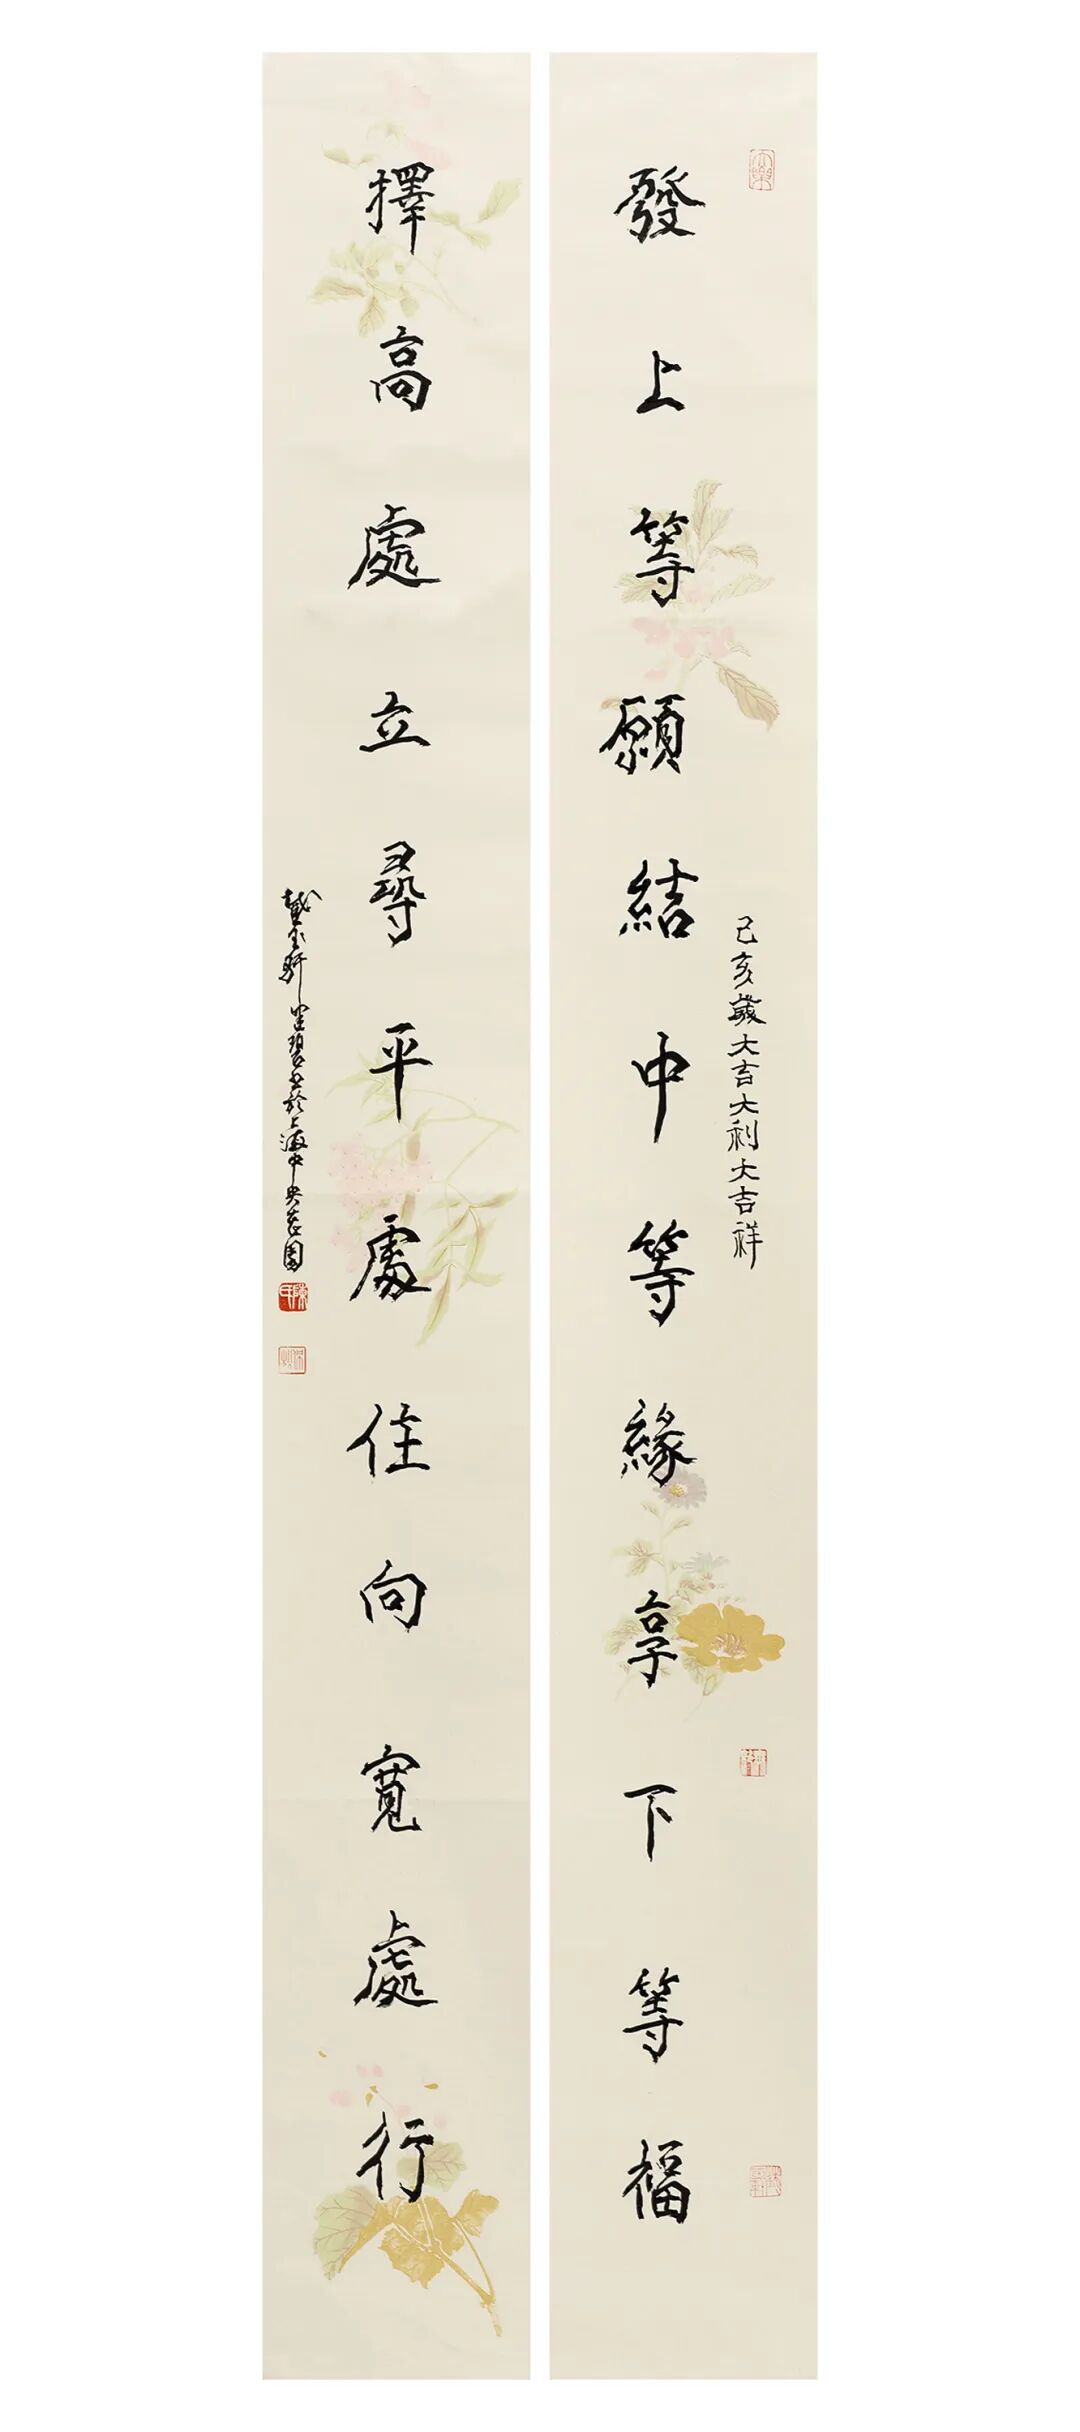 發上等願結中等緣享下等福
己亥歲大吉大利大吉祥
擇高處立尋平處住向寬處行
書於上海中央花園